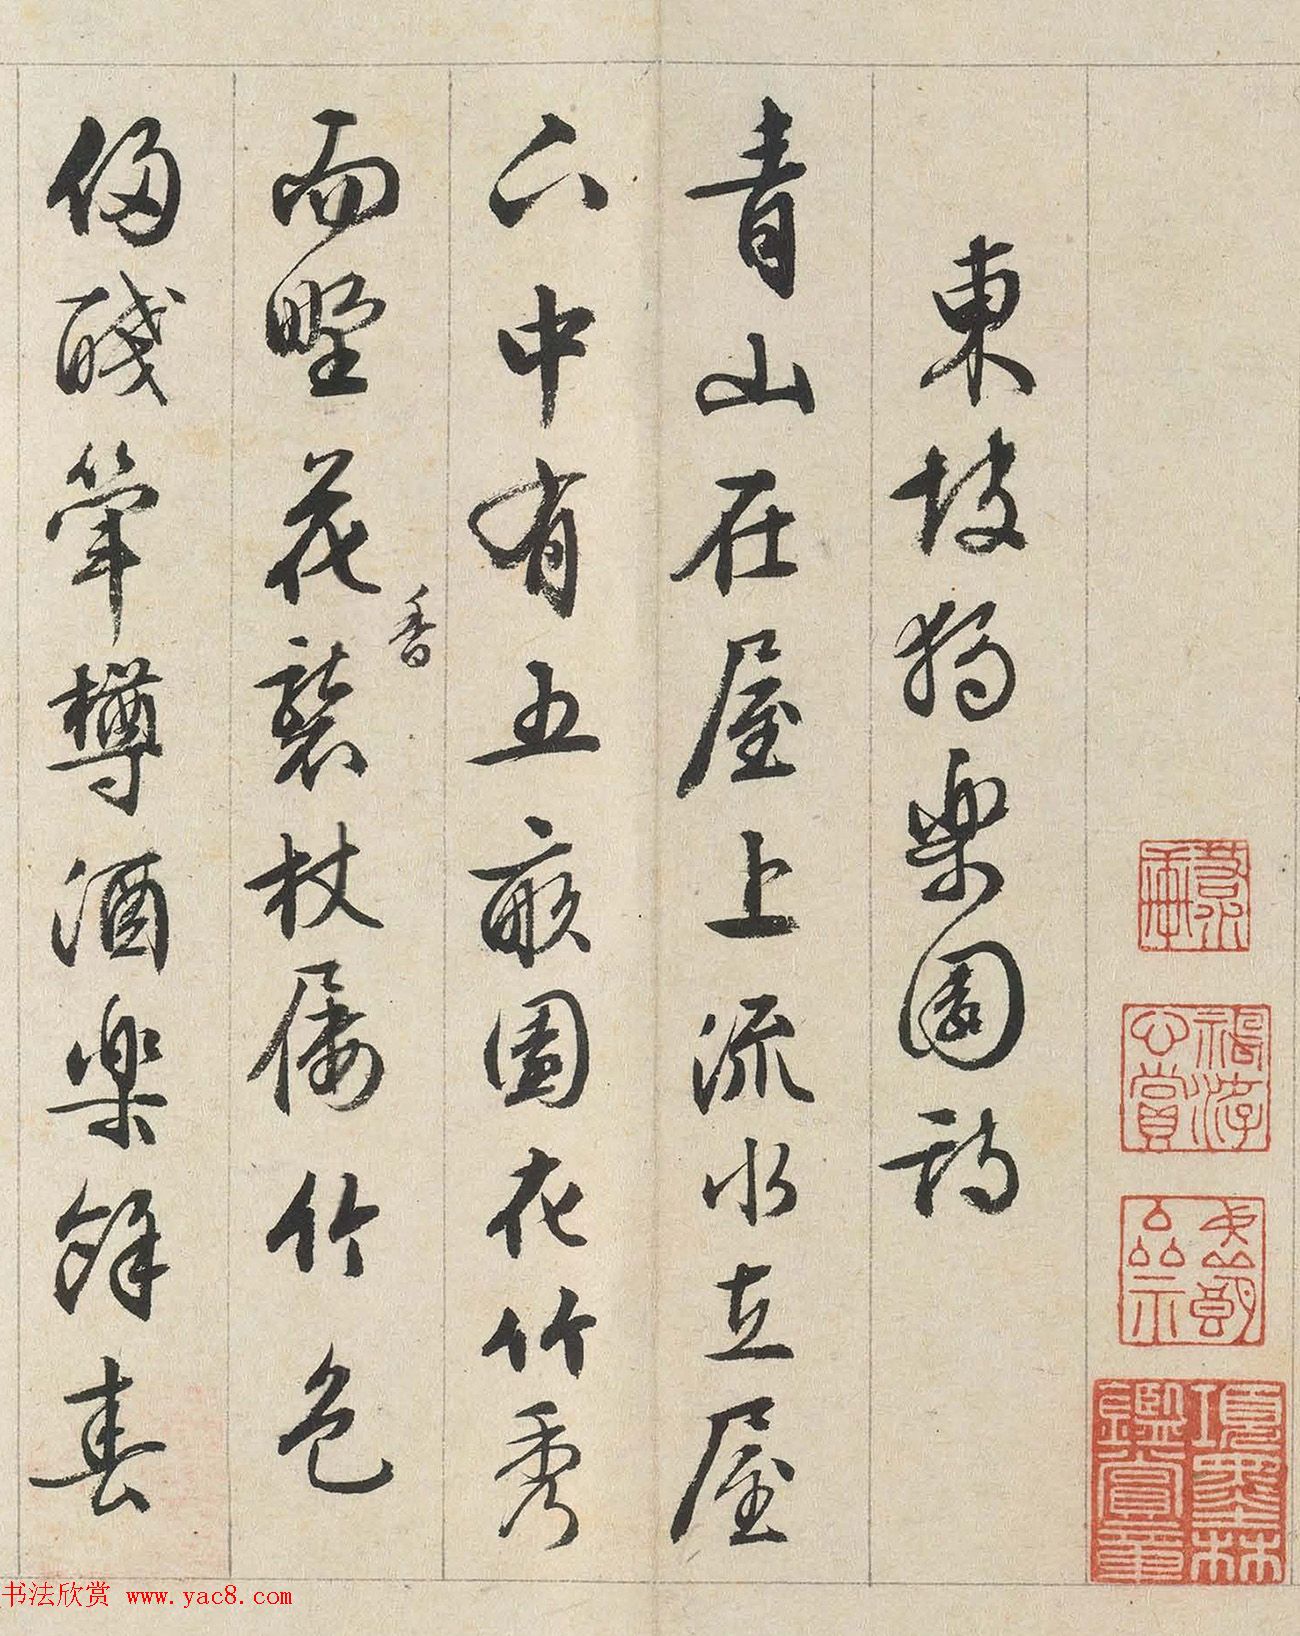 東坡獨樂園詩
青山在屋上流水在屋
下中有五畝園花竹秀
而野花香襲杖屨竹色
侵醆斝樽酒樂餘春
項墨林鑑賞章
书法欣赏 www.yac8.com